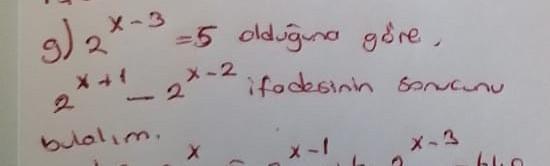 g) 2^x-3 = 5 olduğuna göre,
2^x+1 - 2^x-2 ifadesinin sonucunu
bulalım.
x x-1 x-3